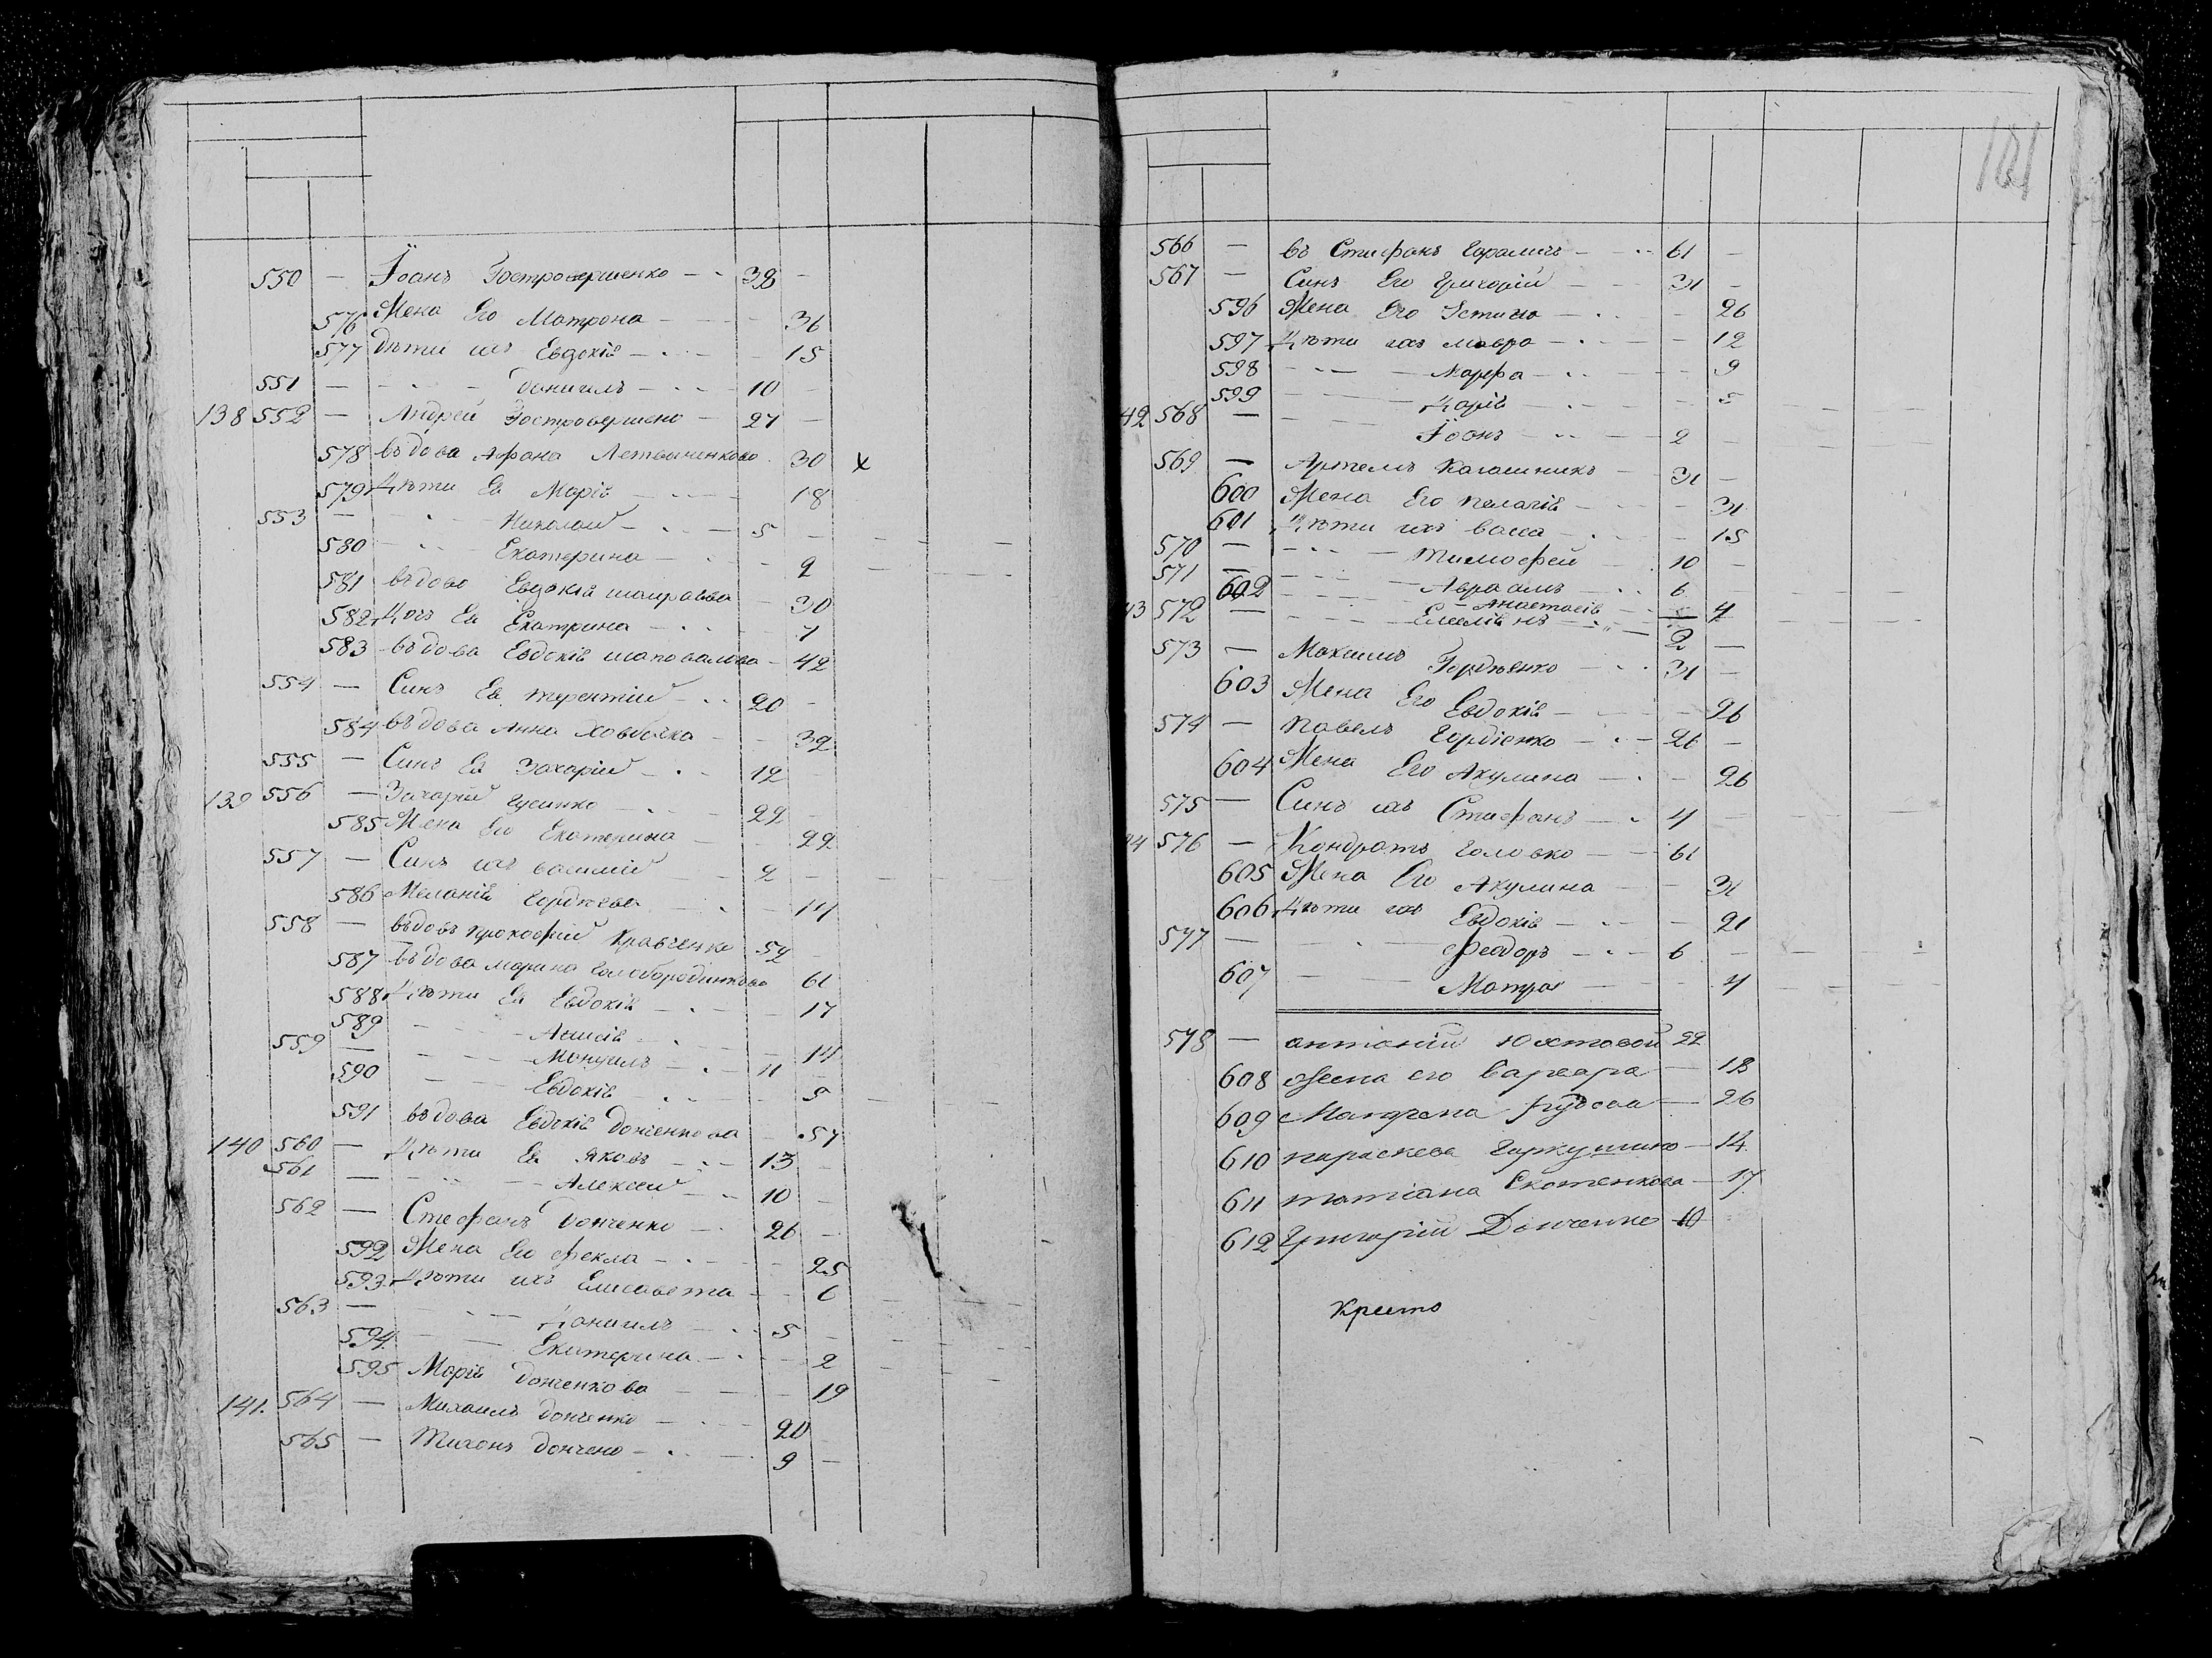 550 — Іоанъ Гостровершенко — 38 —
576 Жена Его Матрона — 36
577 Дѣти ихъ Евдокія — 15
551 — Даниилъ — 10 —
138 552 — Андрей Гостровершено — 27 —
578 вѣдова Афана Летвиненково 30 х
579 Дѣти Ея Марія — 18
553 — Николай — 5 —
580 Екатерина — 2
581 вѣдова Евдокія — 30
582 Дочь Ея Екатрина — 7
583 вѣдова Евдокія шаповалова — 42
554 — Синъ Ея терентій — 20 —
584 вѣдова Анна — 32
555 — Синъ Ея Захарій — 12
139 556 — Захарій Гусинко — 22 —
585 Жена Его Екатерина — 22
557 — Синъ ихъ василий — 2 —
586 Меланія Гордѣева — 14
558 — вѣдовъ прокофий Кравченко 52 —
587 вѣдова марина Голобородинкова 61
588 Дѣти Ея Евдокія — 17
589 — Анисія — 14
559 — Мануилъ — 11
590 — Евдокія — 9
591 вѣдова Евдокія Донченкова — 57
140 560 — Дѣти Ея Яковъ — 13 —
561 — Алексей — 10 —
562 — Стефанъ Донченко — 26 —
592 Жена Его фекла — 25
593 Дѣти ихъ Елисавета — 6
563 — Даниилъ — 5 —
594 — Екатерина — 2
595 Марія Донченкова — 19
141 564 — Михаилъ Донченко — 20
565 — Тихонъ Дончено — 9 —
101
566 — въ Стифанъ — 61 —
567 — Синъ Его Григорій — 31 —
596 Жена Его Устина — 26
597 Дѣти ихъ мавра — 12
598 — Марфа — 9
599 — Дарія — 5
42 568 — Іоанъ — 2 —
569 — Артемъ Калашникъ — 31 —
600 Жена Его пелагія — 31
601 Дѣти ихъ васа — 15
570 — тимофей — 10 —
571 — Авраамъ — 6 —
602 — Анастасія — 4
43 572 — Емелія нъ — 2 —
573 — Махимъ Гордѣенко — 31 —
603 Жена Его Евдокія — 26
574 — павелъ Гордіенко — 26 —
604 Жена Его Акулина — 26
575 — Синъ ихъ Стифанъ — 4
44 576 — Кондратъ Головко — 61
605 Жена Его Акулина — 31
606 Дѣти ихъ Евдокія — 21
577 — Феодоръ — 6 —
607 — Матра — 4
578 — антаній Юхтовой 22
608 жена его Варвара — 18
609 рудова — 26
610 параскева Гаркушино — 14
611 татіана Екотенкова — 17
612 Григорій Донченко 10